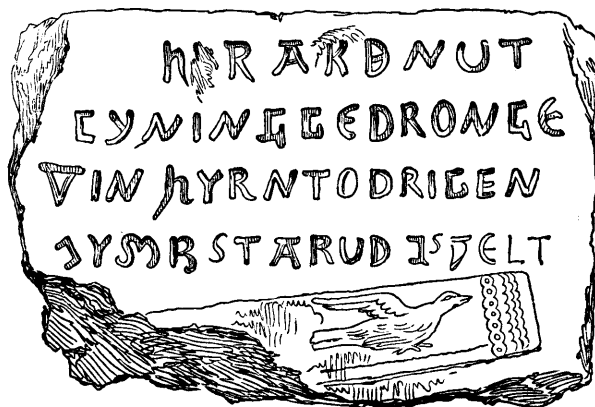 HARAKDNUT
CYNINGGEDRONGE
VIN HYRNTODRIGEN
⁊YMBSTARUD ⁊SVELT